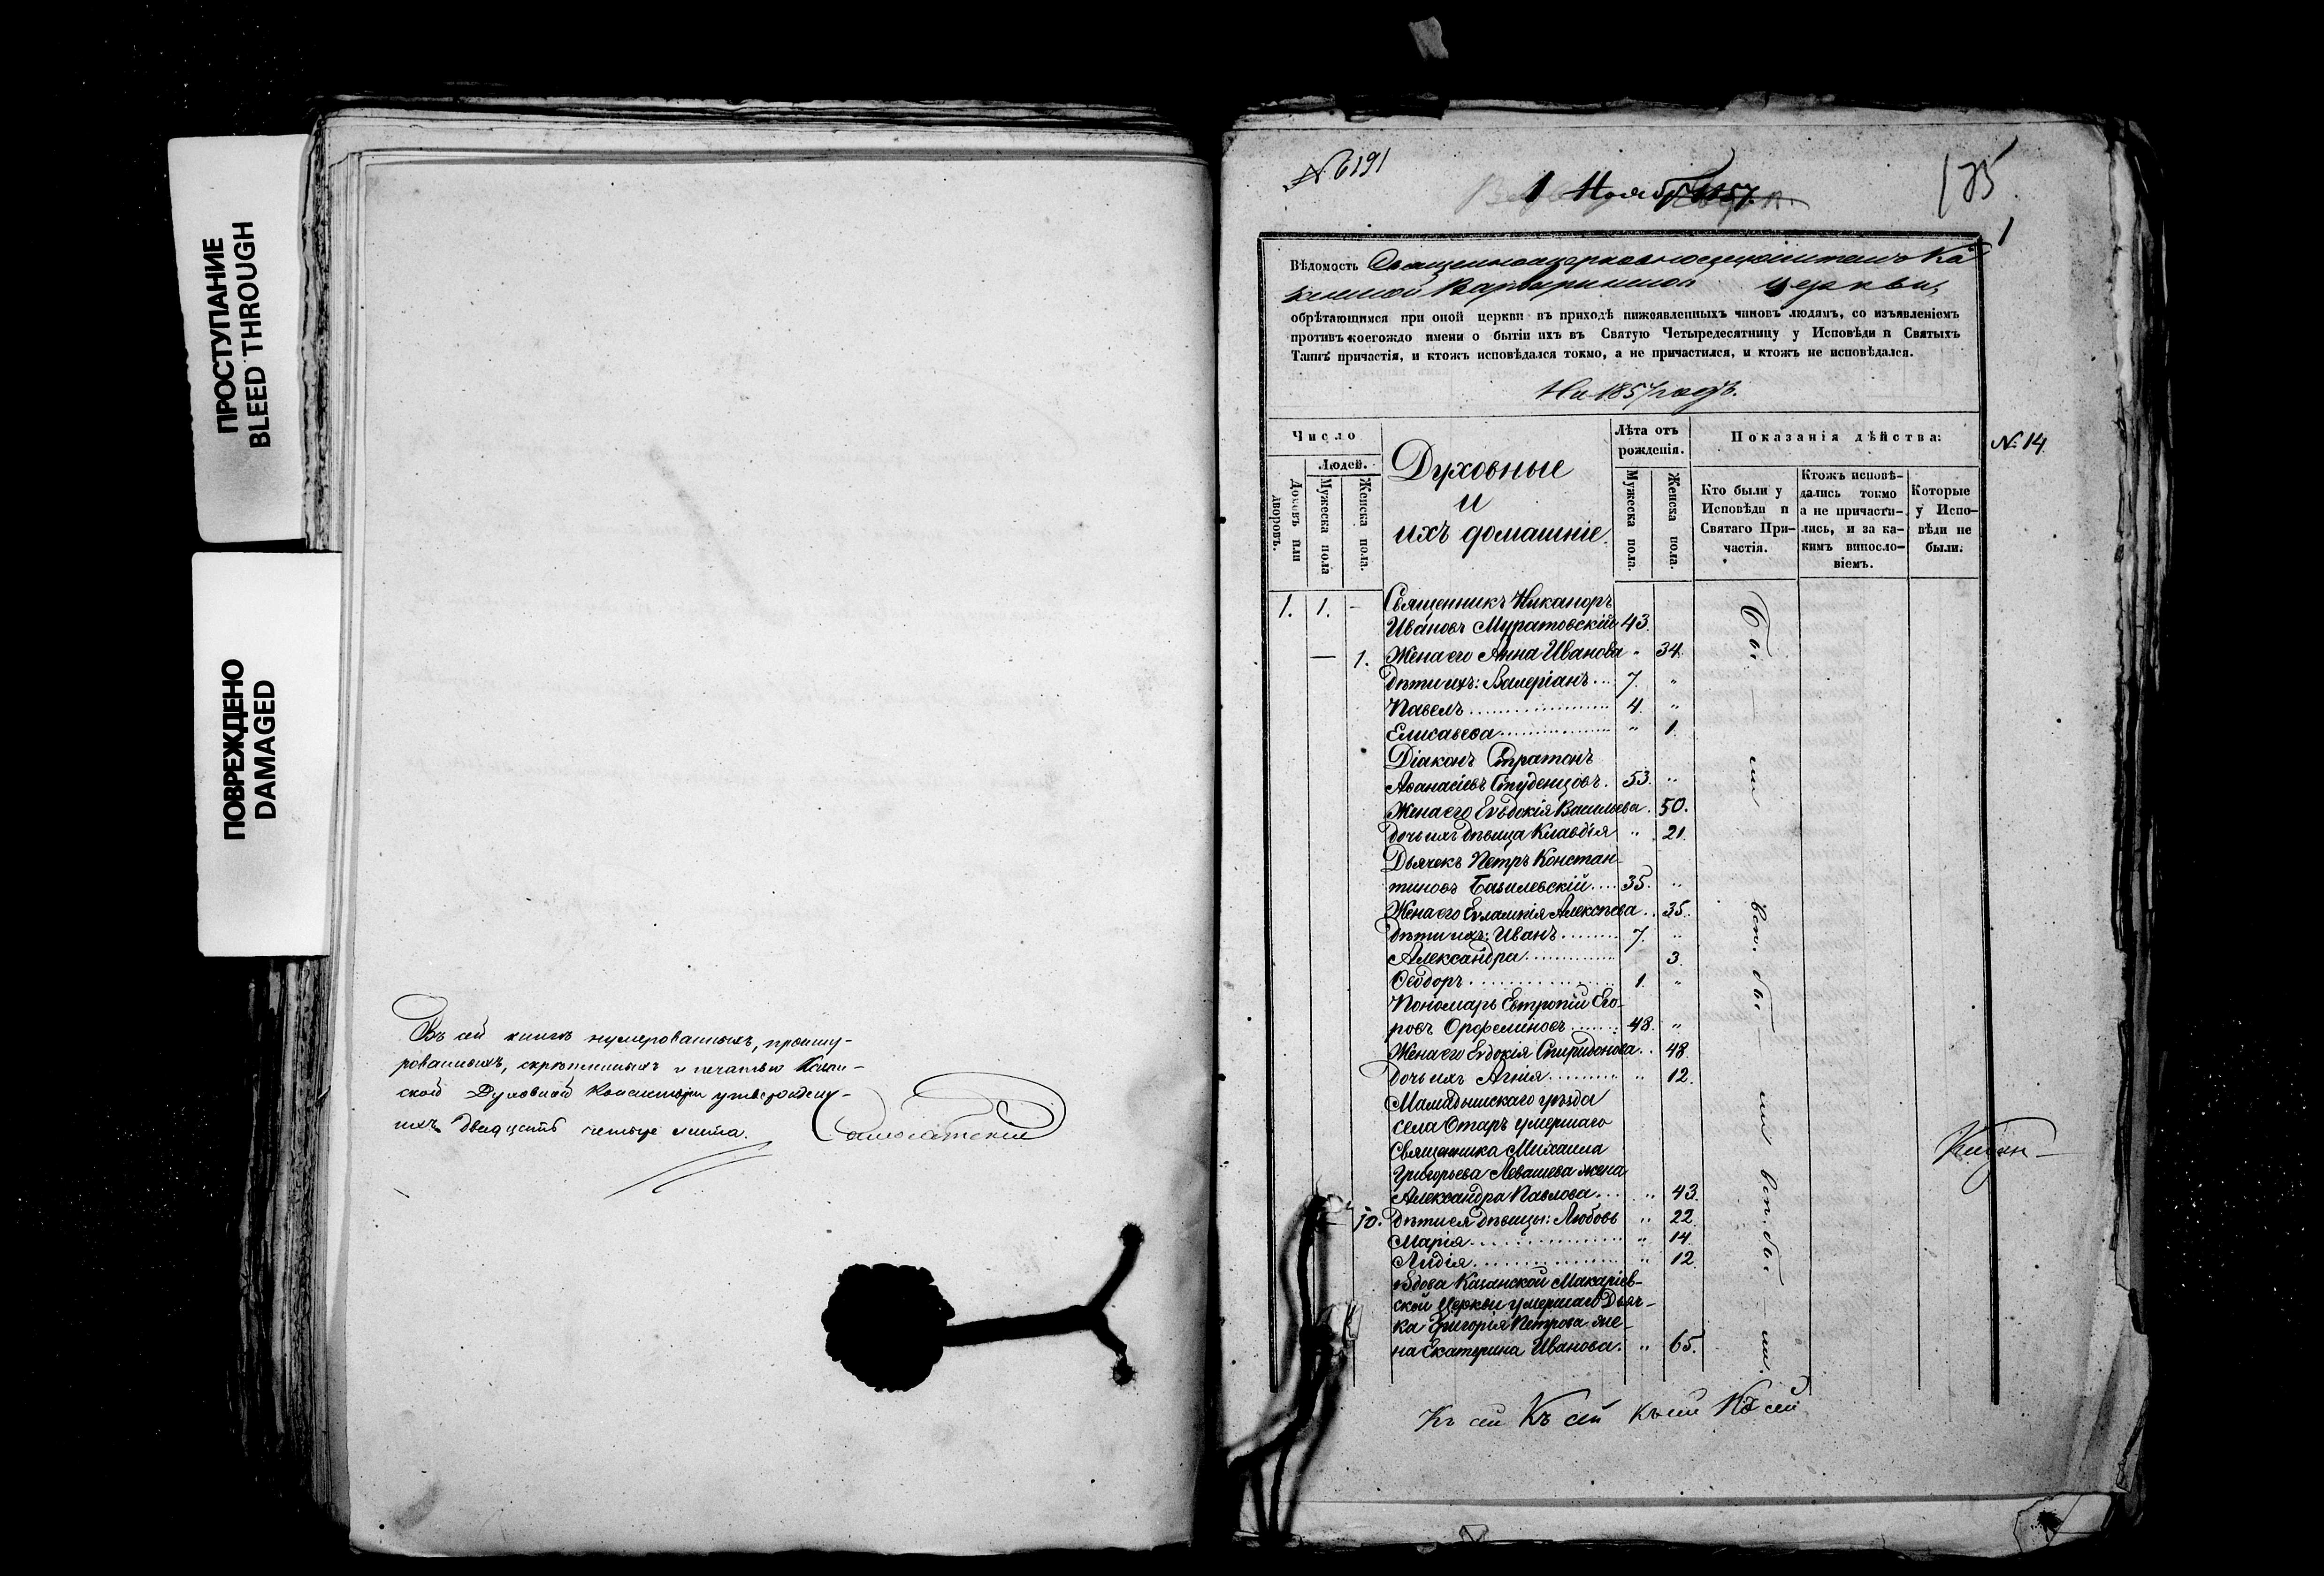 ПРОСТУПАНИЕ
BLEED THROUGH
ПОВРЕЖДЕНО
DAMAGED
Въ сей книгѣ нумерованныхъ, прошну-
рованныхъ, скрѣпленныхъ и печатью Казан-
ской Духовной Консисторіи утвержден-
ныхъ двадцать четыре листа.
№ 6191
1 Ноября 1857.
135
1
Вѣдомость Священноцерковнослужителей Ка-
занской Варваринской церкви,
обрѣтающимся при оной церкви въ приходѣ нижеявленныхъ чиновъ людямъ, со изъявленіемъ
противъ коегождо имени о бытіи ихъ въ Святую Четыредесятницу у Исповѣди и Святыхъ
Таинъ причастія, и ктожъ исповѣдался токмо, а не причастился, и ктожъ не исповѣдался.
На 1857 годъ.
№ 14
Число
Людей.
Домовъ или дворовъ.
Мужеска пола
Женска пола.
Духовные
и
ихъ домашніе.
Лѣта отъ
рожденія.
Мужеска пола.
Женска пола.
Показанія дѣйства:
Кто были у
Исповѣди и
Святаго При-
частія.
Ктожъ исповѣ-
дались токмо
а не причасти-
лись, и за ка-
кимъ виносло-
віемъ.
Которые
у Испо-
вѣди не
были.
1. 1. - Священникъ Никаноръ
Ивановъ Муратовскій 43.
— 1. Жена его Анна Иванова " 34.
Дѣти ихъ: Валеріанъ 7. "
Павелъ 4. "
Елисавета " 1.
Діаконъ Стратонъ
Аѳанасіевъ Студенцовъ. 53. "
Жена его Евдокія Васильева. 50.
Дочь ихъ дѣвица Клавдія " 21.
Дьячекъ Петръ Констан-
тиновъ Базилевскій 35. "
Жена его Евлампія Алексѣева 35.
Дѣти ихъ: Иванъ 7. "
Александра 3.
Ѳеодоръ 1. "
Пономарь Евтропій Его-
ровъ Орфелиновъ 48. "
Жена его Евдокія Спиридонова 48.
Дочь ихъ Агнія " 12.
Мамадышскаго уѣзда
села Отаръ умершаго
Священника Михаила
Григорьева Левашева жена
Александра Павлова " 43.
10. Дѣти ея дѣвицы: Любовь " 22.
Марія " 14.
Лидія " 12.
вдова Казанской Макаріев-
ской Церкви умершаго Дьяч-
ка Григорія Петрова же-
на Екатерина Иванова. " 65.
бы — ли исп. бы — ли исп. бы — ли.
Къ сей Къ сей Къ сей Къ сей